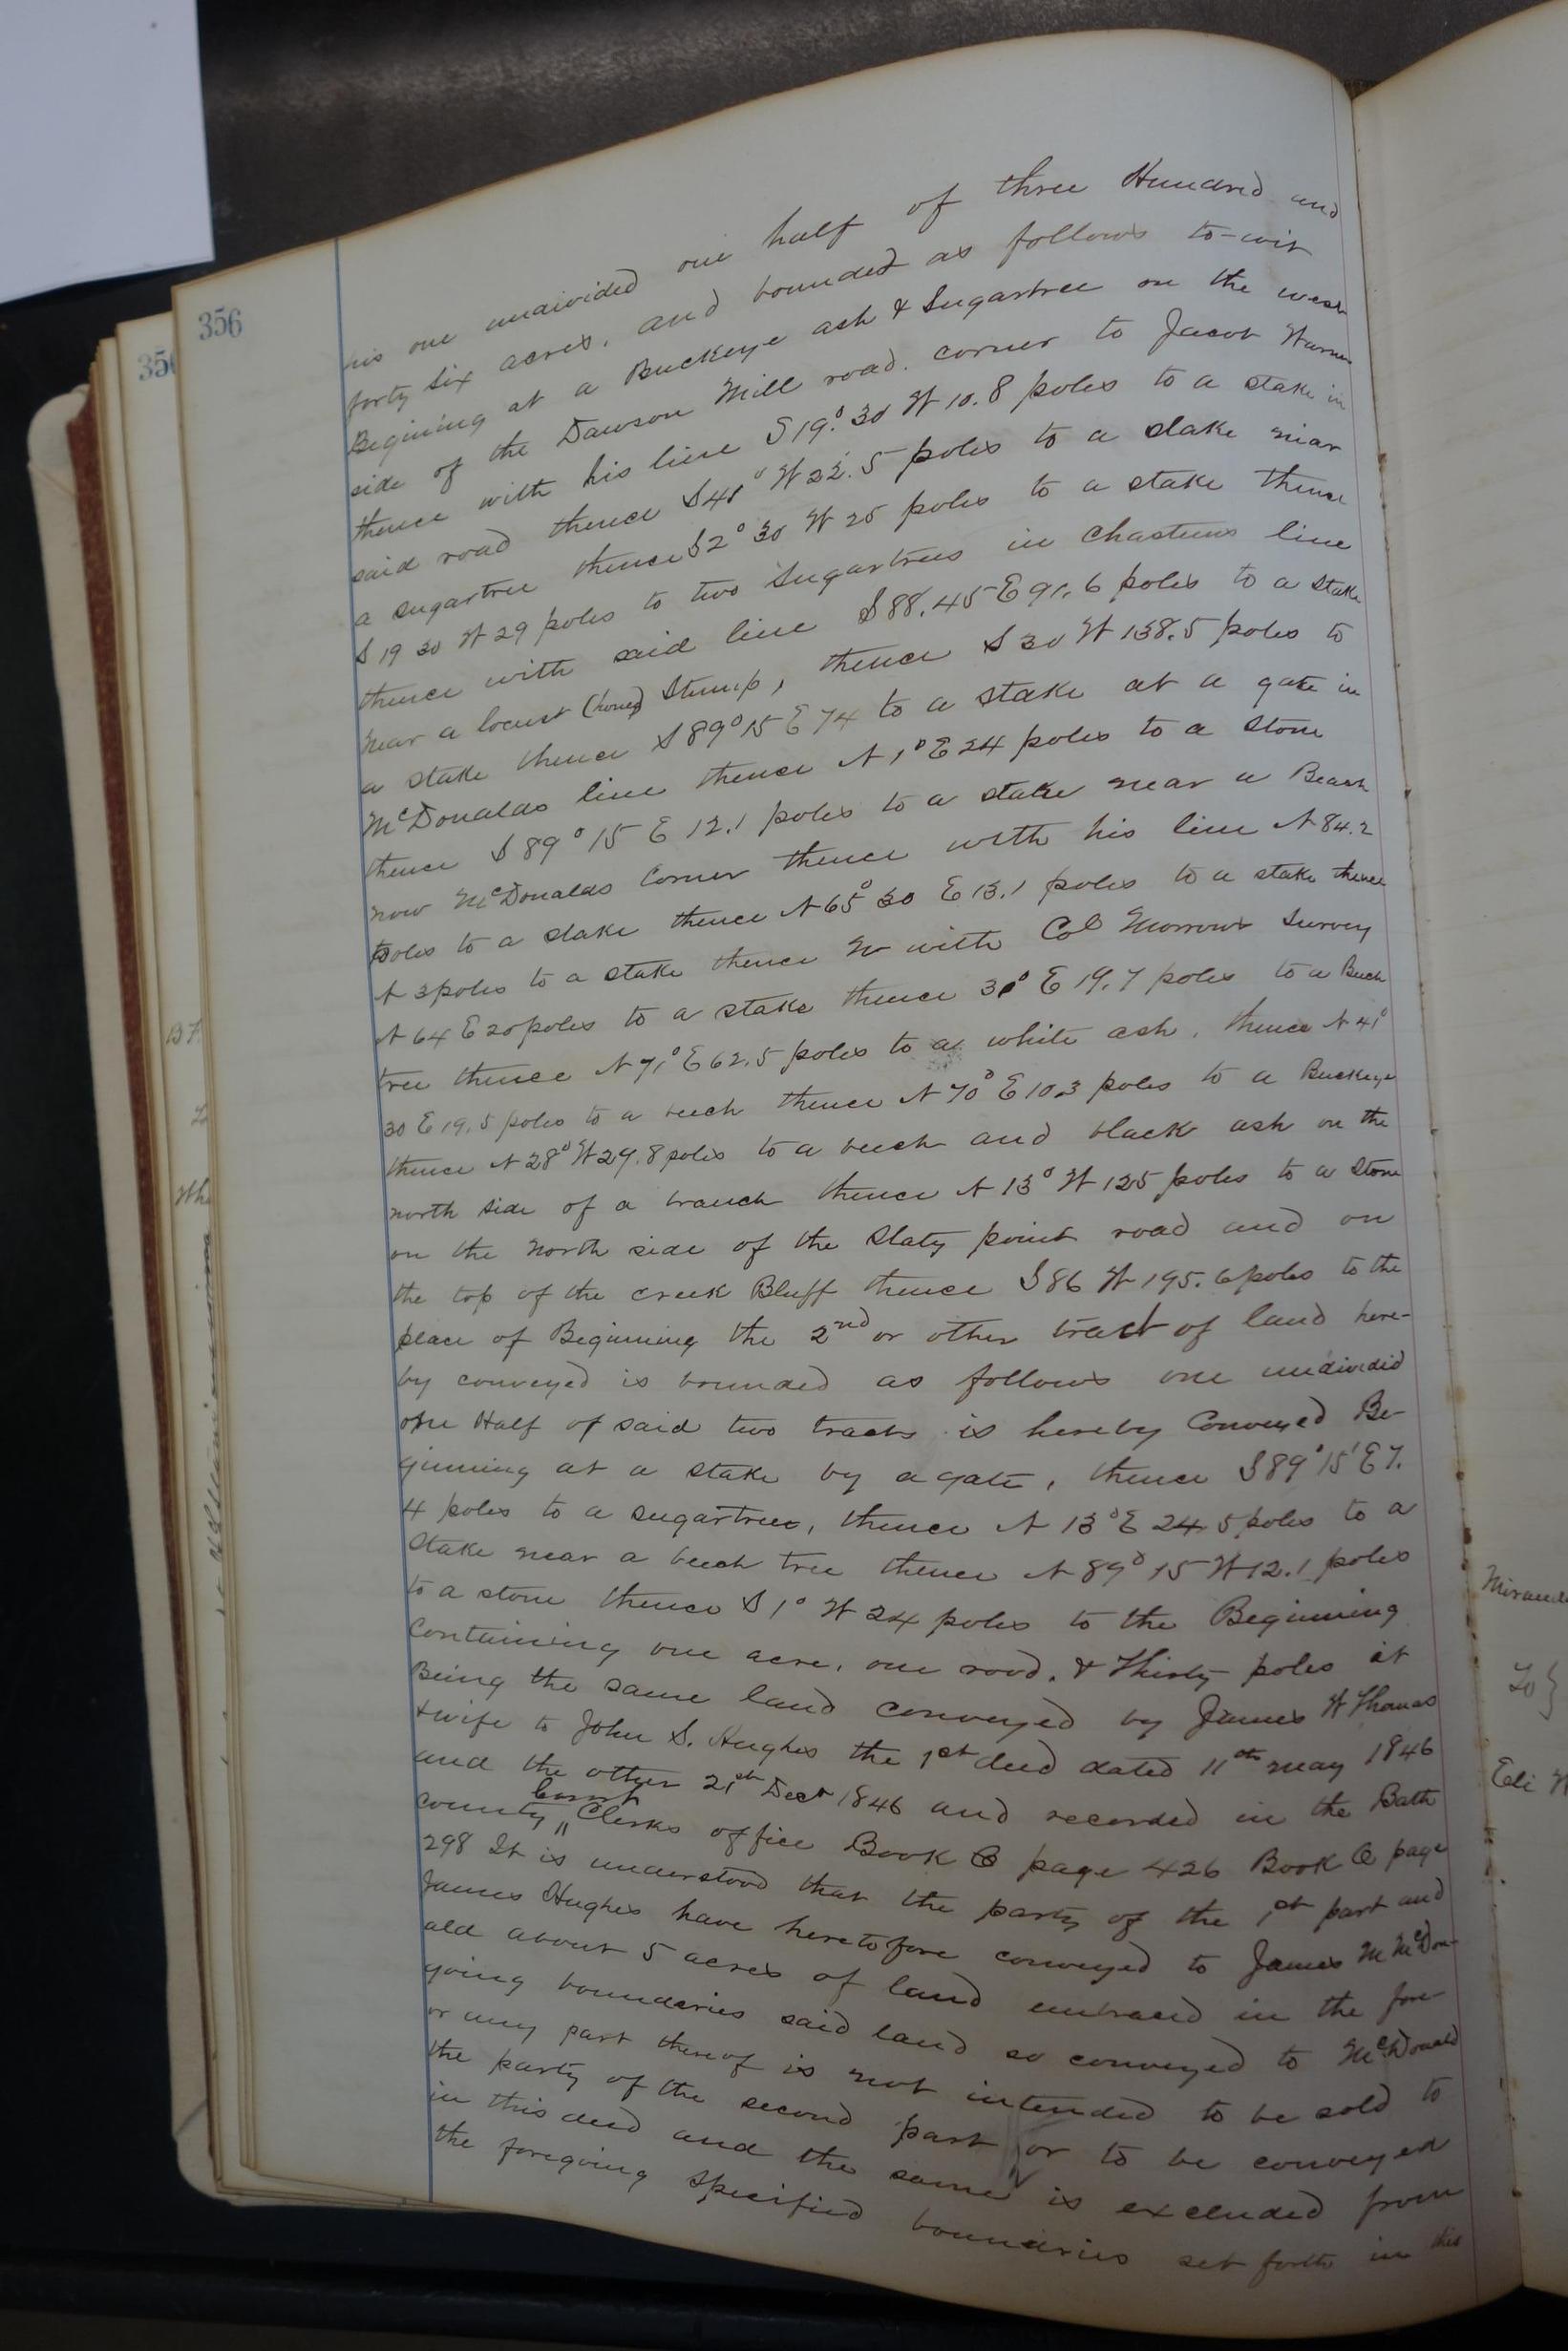 356
his one undivided one half of three Hundred and
forty six acres, and bounded as follows to-wit
Begining at a Buckeye ash & Sugartree on the west
side of the Dawson Mill road. corner to Jacob Warner
thence with his line S 19.° 30 W 10.8 poles to a stake in
said road thence S 48° W 32.5 poles to a stake near
a sugartree thence S 2° 30 W 25 poles to a stake thence
S 19 30 W 29 poles to two Sugartrees in Chastens line
thence with said line S 88.45 E 91.6 poles to a Stake
near a locust (honey) Stump, thence S 30 W 138.5 poles to
a stake thence S 89° 15 E 74 to a stake at a gate in
McDonalds line thence N 1° E 24 poles to a Stone
thence S 89° 15 E 12.1 poles to a stake near a Beach
now McDonalds Corner thence with his line N 84.2
poles to a stake thence N 65° 30 E 13.1 poles to a stake thence
N 3 poles to a stake thence W with Col Morrows Survey
N 64 E 20 poles to a stake thence 30° E 19.7 poles to a Beech
tree thence N 71° E 62.5 poles to a white ash. thence N 41°
30 E 19.5 poles to a beech thence N 70° E 10.3 poles to a Buckeye
thence N 28° W 29.8 poles to a beech and black ash on the
north side of a branch thence N 13° W 125 poles to a Stone
on the north side of the Slaty point road and on
the top of the creek Bluff thence S 86 W 195.6 poles to the
place of Beginning the 2nd or other tract of land here-
by conveyed is bounded as follows one undivided
one Half of said two tracts is hereby Conveyed Be-
ginning at a stake by a gate, thence S 89° 15' E 7.
4 poles to a sugartree, thence N 13° E 24.5 poles to a
Stake near a beech tree thence N 89° 15 W 12.1 poles
to a stone thence S 1° W 24 poles to the Beginning
Containing one acre, one rood, & Thirty poles it
Being the same land conveyed by James W Thomas
& wife to John S. Hughes the 1st deed dated 11th may 1846
and the other 21st Dect 1846 and recorded in the Bath
county " Court Clerks office Book page 426 Book Q page
298 It is understood that the party of the 1st part and
James Hughes have heretofore conveyed to James M McDon-
ald about 5 acres of land embraced in the fore-
going boundaries said land so conveyed to McDonald
or any part thereof is not intended to be sold to
the party of the second part or to be conveyed
in this deed and the same is excluded from
the foregoing specified boundaries set forth in this
To}
Eli W